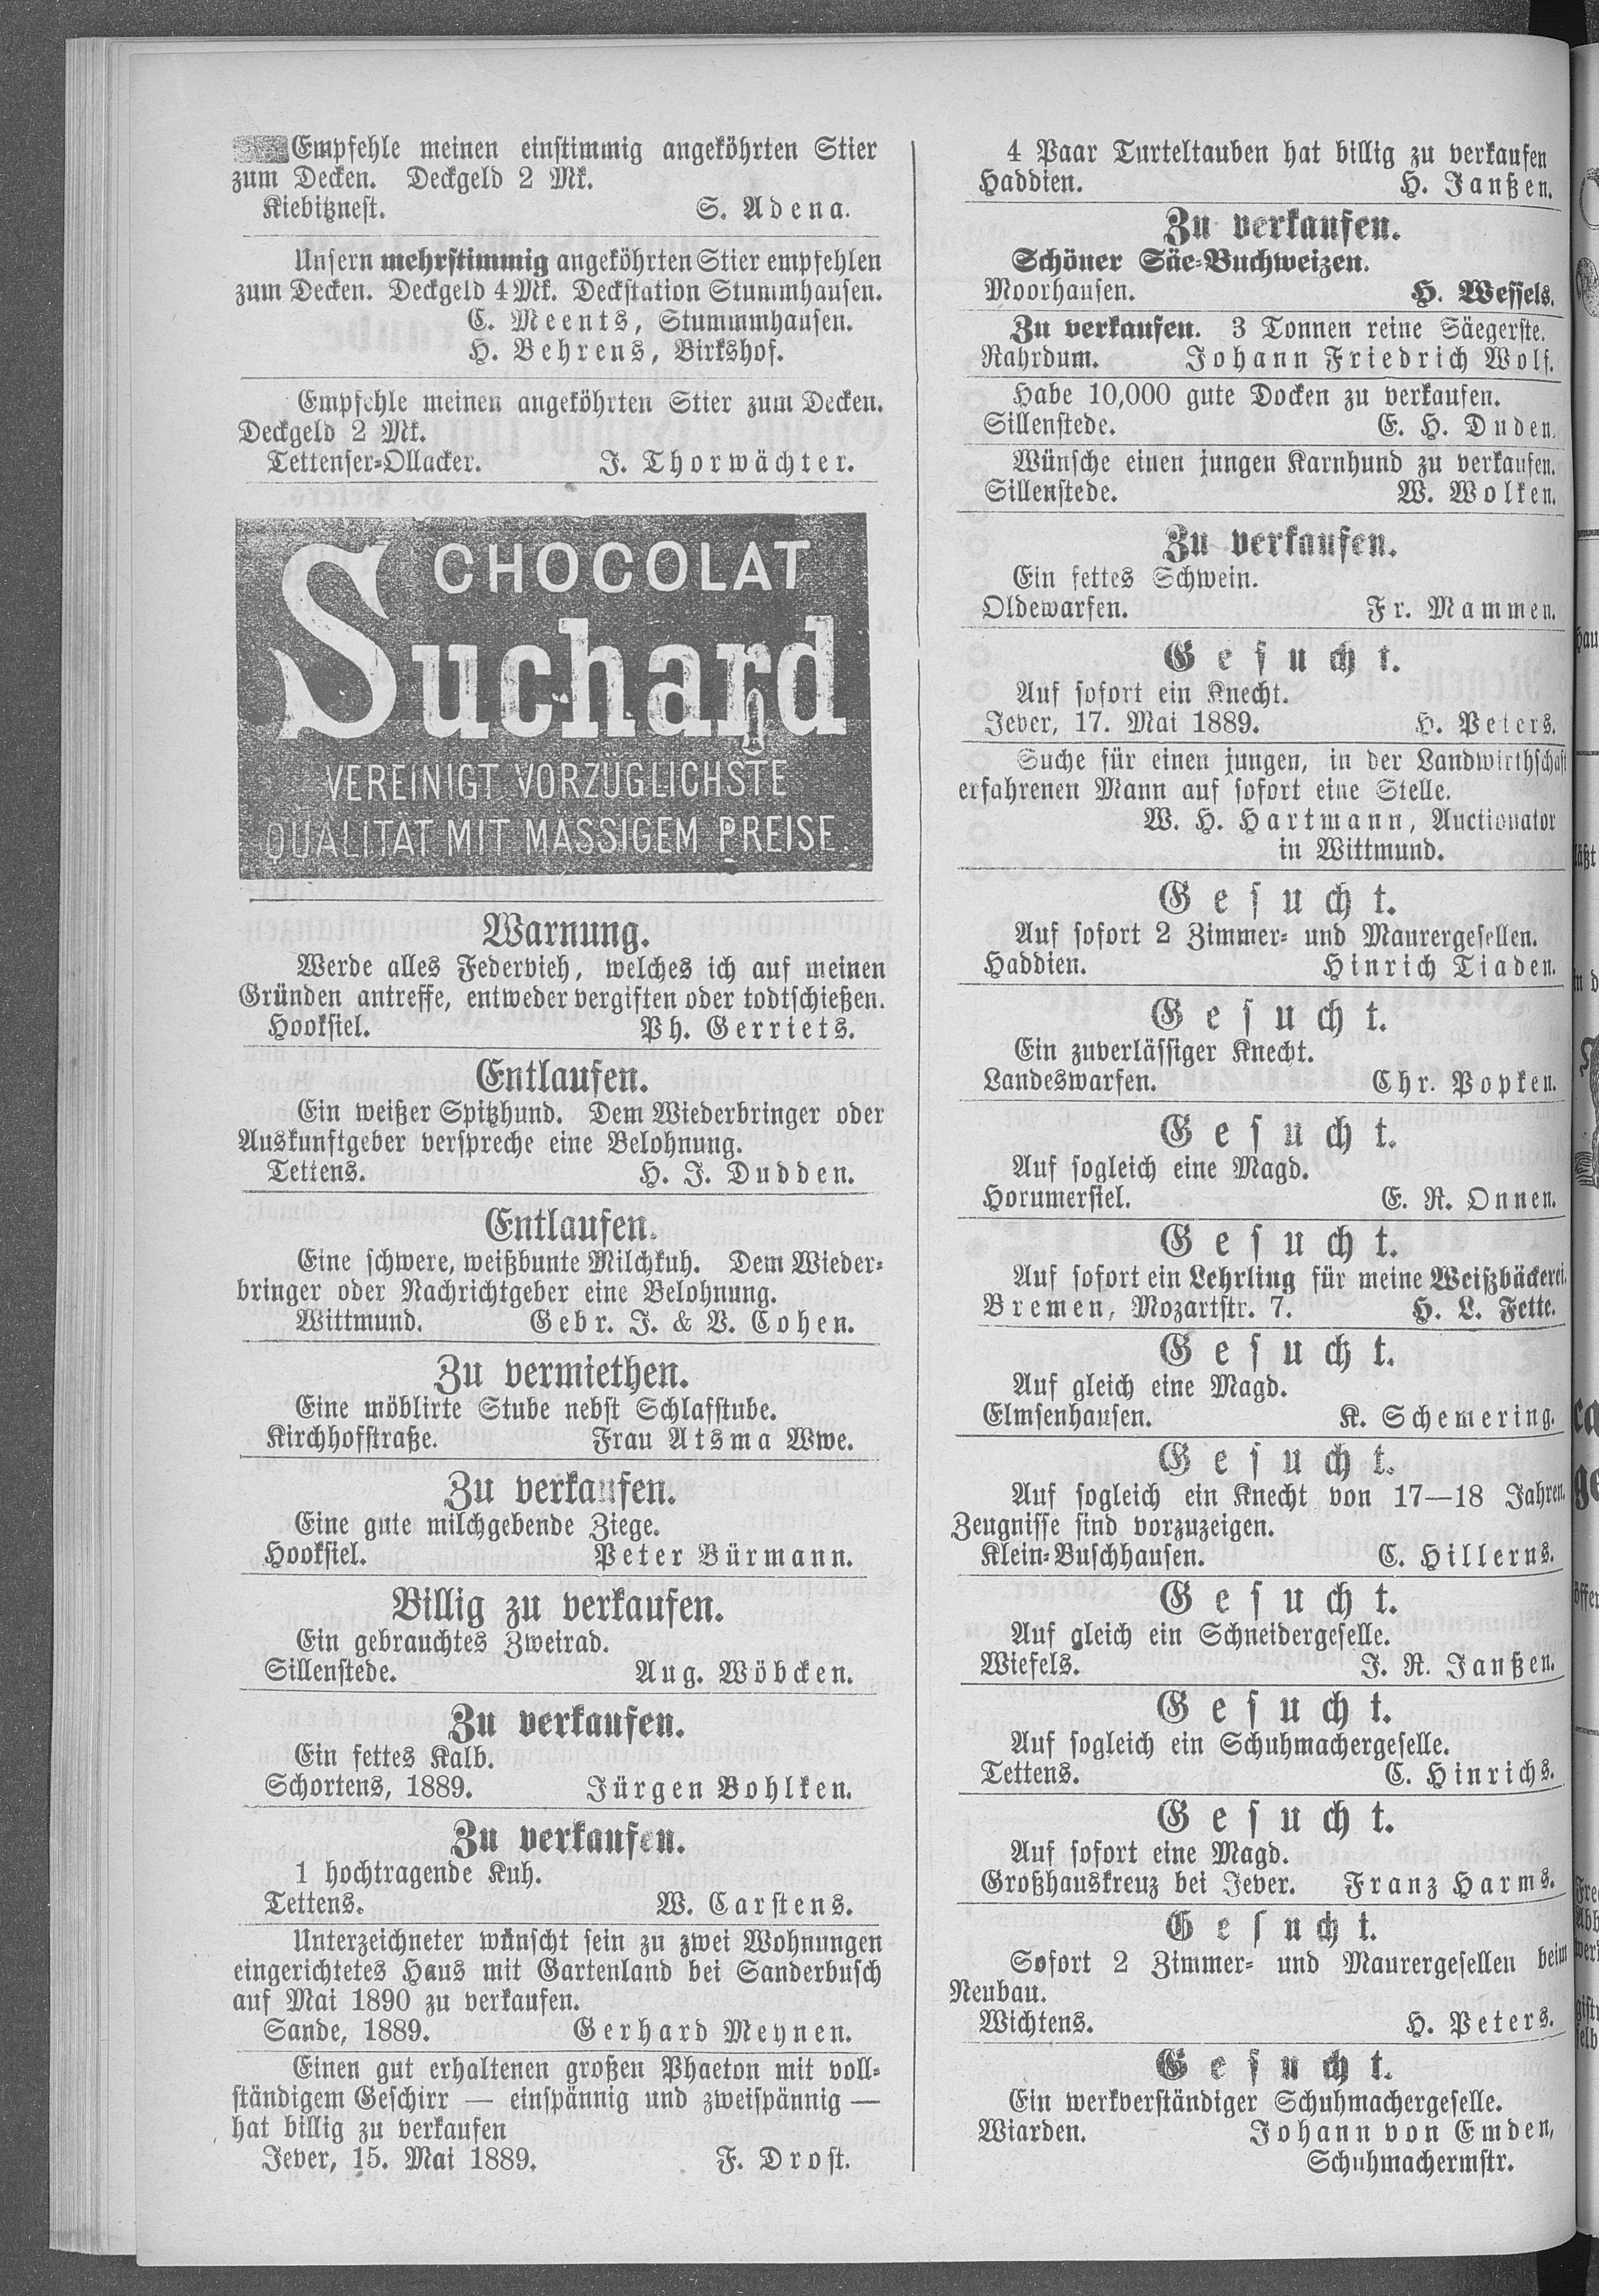 Empfehle meinen einstimmig angeköhrten Stier
zum Decken. Deckgeld 2 Mk.
Kiebitznest. S. Adena.
Unsern mehrstimmig angeköhrten Stier empfehlen
zum Decken. Deckgeld 4 Mk. Deckstation Stummhausen.
C. Meents, Stummmhausen.
H. Behrens, Birkshof.
Empfehle meinen angeköhrten Stier zum Decken.
Deckgeld 2 Mk.
Tettenser-Ollacker. J. Thorwächter.
CHOCOLAT
Suchard
VEREINIGT VORZÜGLICHSTE
QUALITÄT MIT MÄSSIGEM PREISE.
Warnung.
Werde alles Federvieh, welches ich auf meinen
Gründen antreffe, entweder vergiften oder todtschießen.
Hooksiel. Ph. Gerriets.
Entlaufen.
Ein weißer Spitzhund. Dem Wiederbringer oder
Auskunftgeber verspreche eine Belohnung.
Tettens. H. J. Dudden.
Entlaufen.
Eine schwere, weißbunte Milchkuh. Dem Wieder-
bringer oder Nachrichtgeber eine Belohnung.
Wittmund. Gebr. J. & V. Cohen.
Zu vermiethen.
Eine möblirte Stube nebst Schlafstube.
Kirchhofstraße. Frau Atsma Wwe.
Zu verkaufen.
Eine gute milchgebende Ziege.
Hooksiel. Peter Bürmann.
Billig zu verkaufen.
Ein gebrauchtes Zweirad.
Sillenstede. Aug. Wöbcken.
Zu verkaufen.
Ein fettes Kalb.
Schortens, 1889. Jürgen Bohlken.
Zu verkaufen.
1 hochtragende Kuh.
Tettens. W. Carstens.
Unterzeichneter wünscht sein zu zwei Wohnungen
eingerichtetes Haus mit Gartenland bei Sanderbusch
auf Mai 1890 zu verkaufen.
Sande, 1889. Gerhard Meynen.
Einen gut erhaltenen großen Phaeton mit voll-
ständigem Geschirr — einspännig und zweispännig —
hat billig zu verkaufen
Jever, 15. Mai 1889. F. Drost.
4 Paar Turteltauben hat billig zu verkaufen
Haddien. H. Janßen.
Zu verkaufen.
Schöner Säe-Buchweizen.
Moorhausen. H. Wessels.
Zu verkaufen. 3 Tonnen reine Säegerste.
Rahrdum. Johann Friedrich Wolf.
Habe 10,000 gute Docken zu verkaufen.
Sillenstede. E. H. Duden.
Wünsche einen jungen Karnhund zu verkaufen.
Sillenstede. W. Wolken.
Zu verkaufen.
Ein fettes Schwein.
Oldewarfen. Fr. Mammen.
Gesucht.
Auf sofort ein Knecht.
Jever, 17. Mai 1889. H. Peters.
Suche für einen jungen, in der Landwirthschaft
erfahrenen Mann auf sofort eine Stelle.
W. H. Hartmann, Auctionator
in Wittmund.
Gesucht.
Auf sofort 2 Zimmer- und Maurergesellen.
Haddien. Hinrich Tiaden.
Gesucht.
Ein zuverlässiger Knecht.
Landeswarfen. Chr. Popken.
Gesucht.
Auf sogleich eine Magd.
Horumersiel. E. R. Onnen.
Gesucht.
Auf sofort ein Lehrling für meine Weißbäckerei.
Bremen, Mozartstr. 7. H. L. Fette.
Gesucht.
Auf gleich eine Magd.
Elmsenhausen. K. Schemering.
Gesucht.
Auf sogleich ein Knecht von 17—18 Jahren.
Zeugnisse sind vorzuzeigen.
Klein-Buschhausen. C. Hillerns.
Gesucht.
Auf gleich ein Schneidergeselle.
Wiefels. J. R. Janßen.
Gesucht.
Auf sogleich ein Schuhmachergeselle.
Tettens. C. Hinrichs.
Gesucht.
Auf sofort eine Magd.
Großhauskreuz bei Jever. Franz Harms.
Gesucht.
Sofort 2 Zimmer- und Maurergesellen beim
Neubau.
Wichtens. H. Peters.
Gesucht.
Ein werkverständiger Schuhmachergeselle.
Wiarden. Johann von Emden,
Schuhmachermstr.